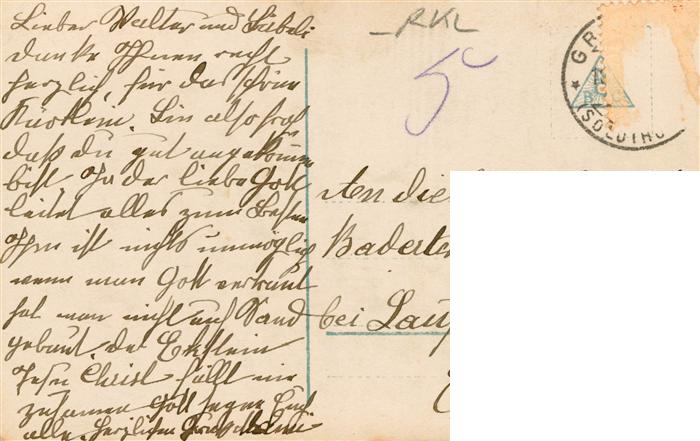 Lieber Walter und Bäbeli
danke Ihnen recht
herzlich, für das schöne
Kärtlein. Bin also froh
daß du gut angekommen
bist. Ja der liebe Gott
leitet alles zum Besten
Ihm ist nichts unmöglich
wenn man Gott vertraut
hat man nicht auf Sand
gebaut. der Ekstein
Jesu Christ hällt uns
zusamen Gott segne Euch
alle. Herzlichen Gruss
RKL
5c
GR
(SOLOTHU
An die
Badert
bei Lauf